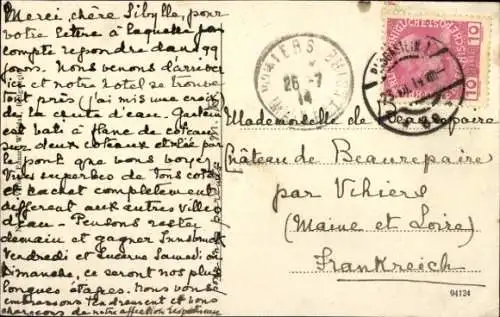 Merci, chère Sibylle, pour
votre lettre à laquelle par
compte répondre dans 99
jours. Nous venons d'arriver
ici et notre hôtel se trouve
tout près (j'ai mis une croix
de la chute d'eau. Gastein
est bâti à flanc de coteau
sur deux coteaux et liée par
le pont que vous voyez
Vues superbes de tous côtés
et cachet complètement
différent aux autres villes
d'eau. Pensons rester
demain et gagner Innsbruck
Vendredi et Lucerne Samedi ou
Dimanche, ce seront nos plus
longues étapes. Nous vous
embrassons tendrement et vous
chargeons de notre affection respectueuse
26 -7
14
10
10
Mademoiselle de Beaurepaire
Château de Beaurepaire
par Vihiers
(Maine et Loire)
Frankreich
04124